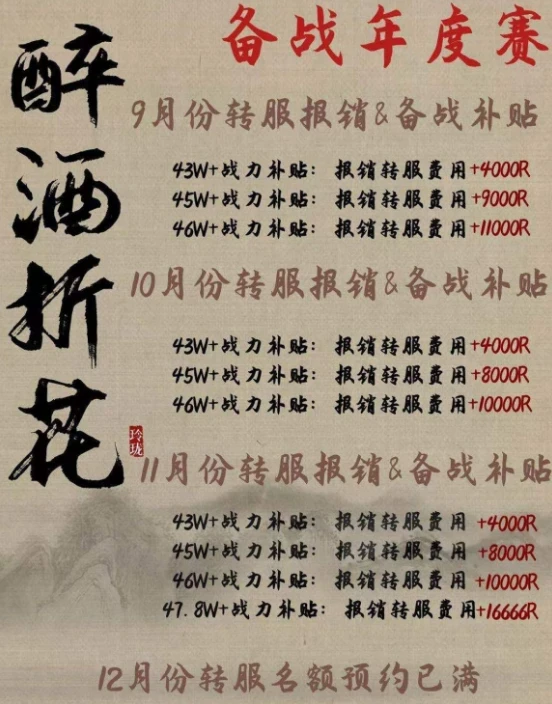 备战年度赛
醉酒折花
玲珑
9月份转服报销&备战补贴
43W+战力补贴：报销转服费用+4000R
45W+战力补贴：报销转服费用+9000R
46W+战力补贴：报销转服费用+11000R
10月份转服报销&备战补贴
43W+战力补贴：报销转服费用+4000R
45W+战力补贴：报销转服费用+8000R
46W+战力补贴：报销转服费用+10000R
11月份转服报销&备战补贴
43W+战力补贴：报销转服费用+4000R
45W+战力补贴：报销转服费用+8000R
46W+战力补贴：报销转服费用+10000R
47.8W+战力补贴：报销转服费用+16666R
12月份转服名额预约已满